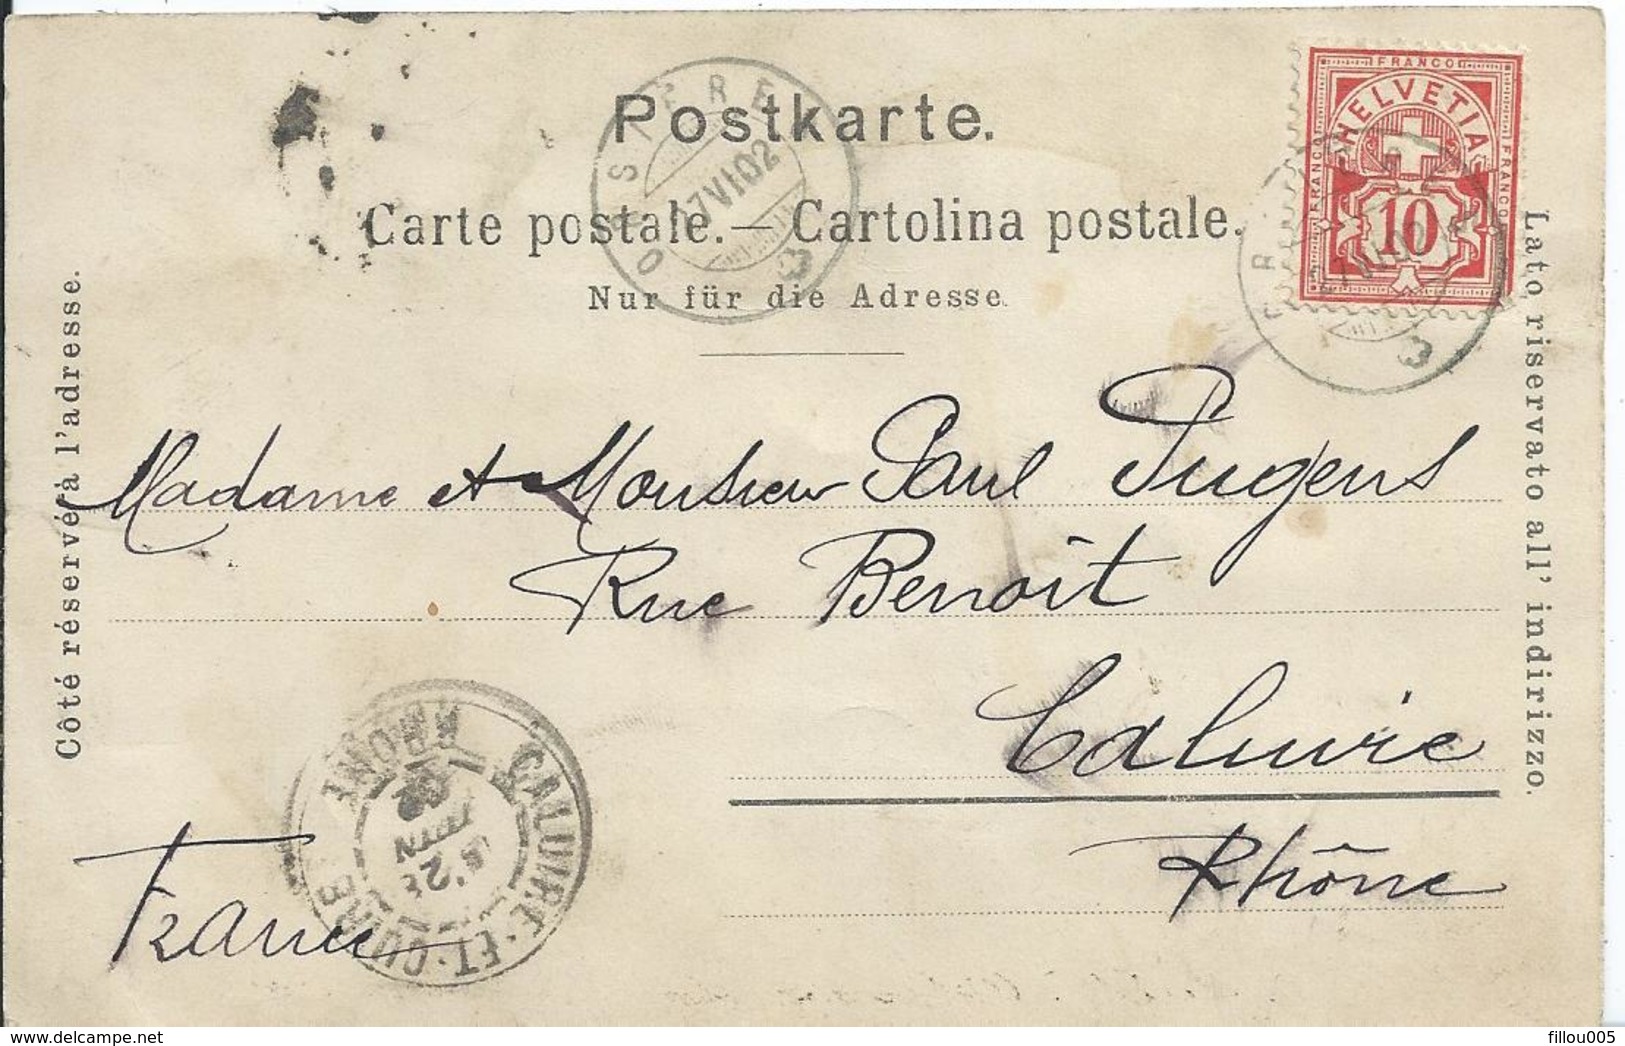 Postkarte.
Carte postale. — Cartolina postale.
Nur für die Adresse.
Côté réservé à l'adresse.
Lato riservato all' indirizzo.
FRANCO
HELVETIA
FRANCO
FRANCO
10
VI 02
Madame et Monsieur Paul Pugens
Rue Benoît
Caluire
Rhône
France
CALUIRE-ET-CUIRE
RHONE
JUIN
02
delcampe.net
fillou005